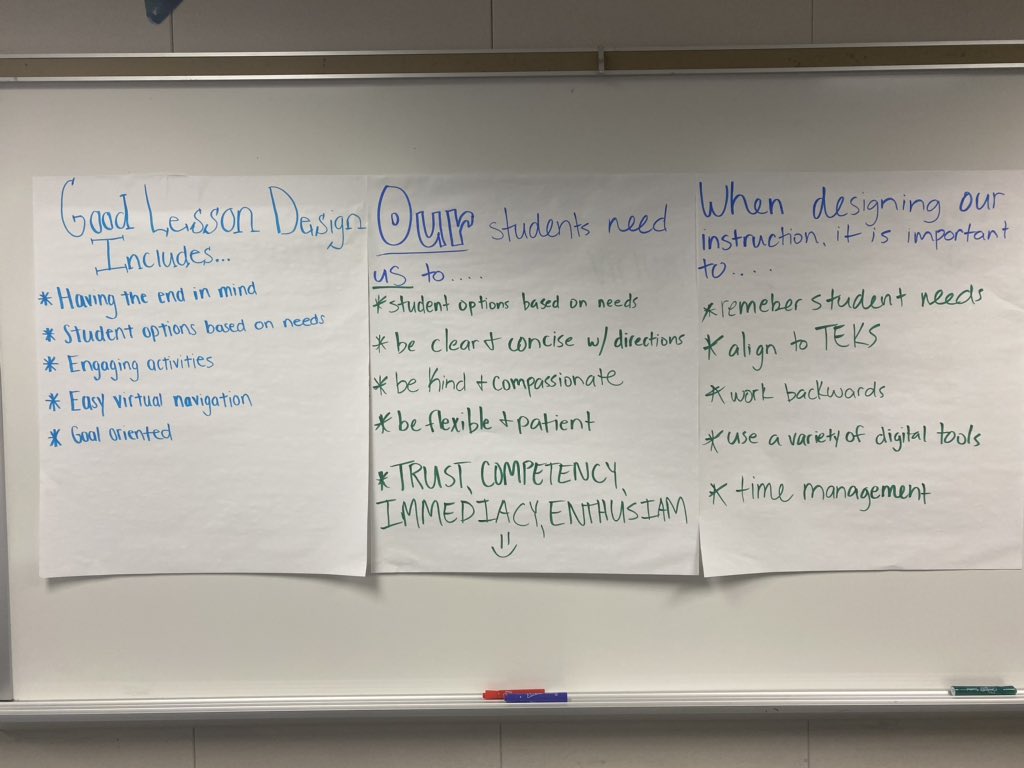 Good Lesson Design
Includes...
* Having the end in mind
* Student options based on needs
* Engaging activities
* Easy virtual navigation
* Goal oriented
Our students need
us to....
* student options based on needs
* be clear + concise w/ directions
* be kind + compassionate
* be flexible + patient
* TRUST, COMPETENCY,
IMMEDIACY, ENTHUSIAM
When designing our
instruction, it is important
to....
* remeber student needs
* align to TEKS
* work backwards
* use a variety of digital tools
* time management